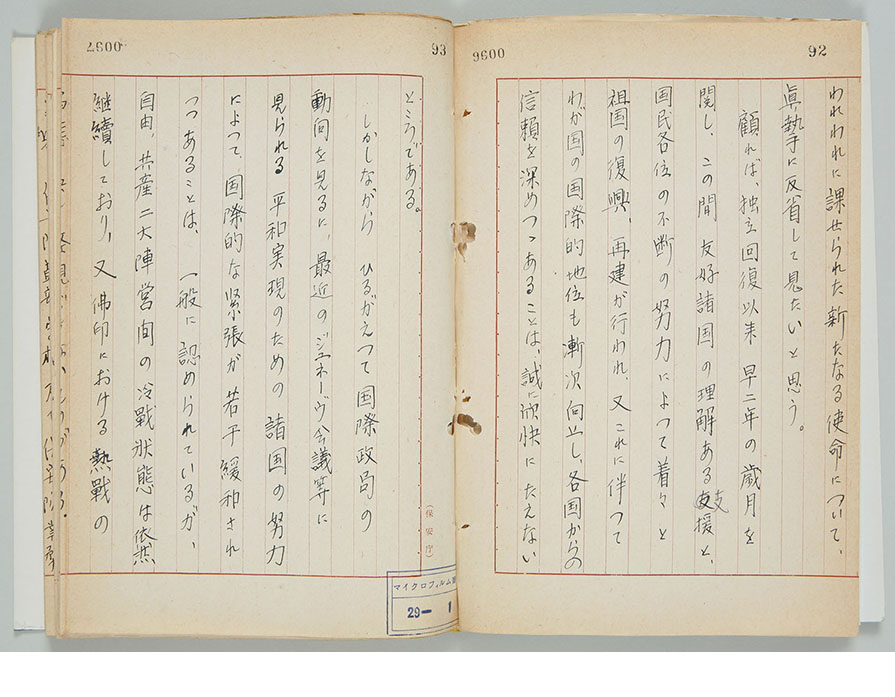 9600
92
われわれに課せられた新たなる使命について、
眞執手に反省して見たいと思う。
顧れば、独立回復以来早二年の歳月を
関し、この間友好諸国の理解ある支援と、
国民各位の不断の努力によつて着々と
祖国の復興、再建が行われ、又これに伴つて
わが国の国際的地位も漸次向上し、各国からの
信頼を深めつつあることは、誠に欣快にたえない
4600
93
ところである。
しかしながらひるがえつて国際政局の
動向を見るに、最近のジュネーヴ会議等に
見られる平和実現のための諸国の努力
によつて、国際的な緊張が若干緩和され
つつあることは、一般に認められているが、
自由、共産二大陣営間の冷戰状態は依然
継續しており、又佛印における熱戰の
(保安庁)
マイクロフィルム
29— 1